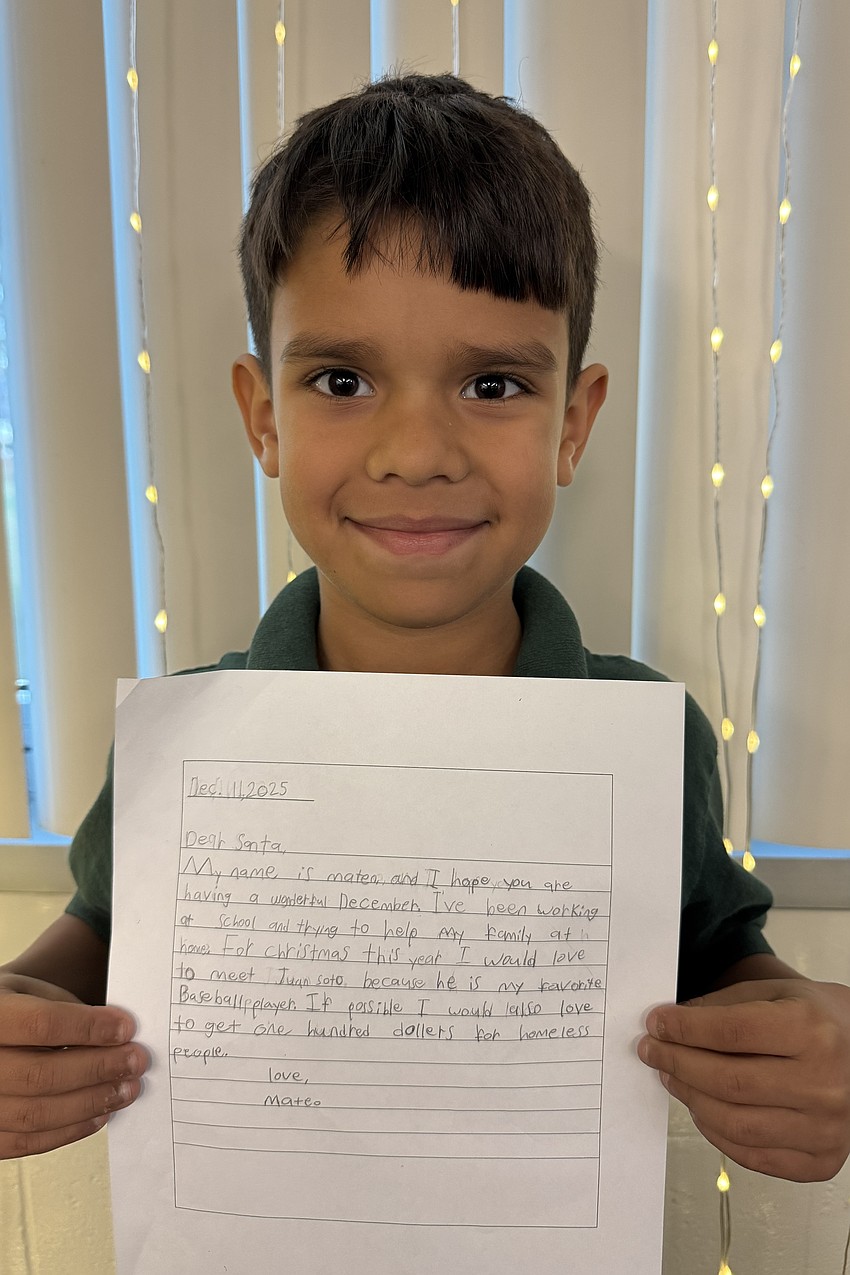 Dec. 11, 2025
Dear Santa,
My name is mateo, and I hope you are
having a wonderful December. I've been working
at school and trying to help my family at
home. For christmas this year I would love
to meet Juan soto because he is my favorite
Baseball player. If possible I would also love
to get one hundred dollers for homeless
people.
love,
Mateo